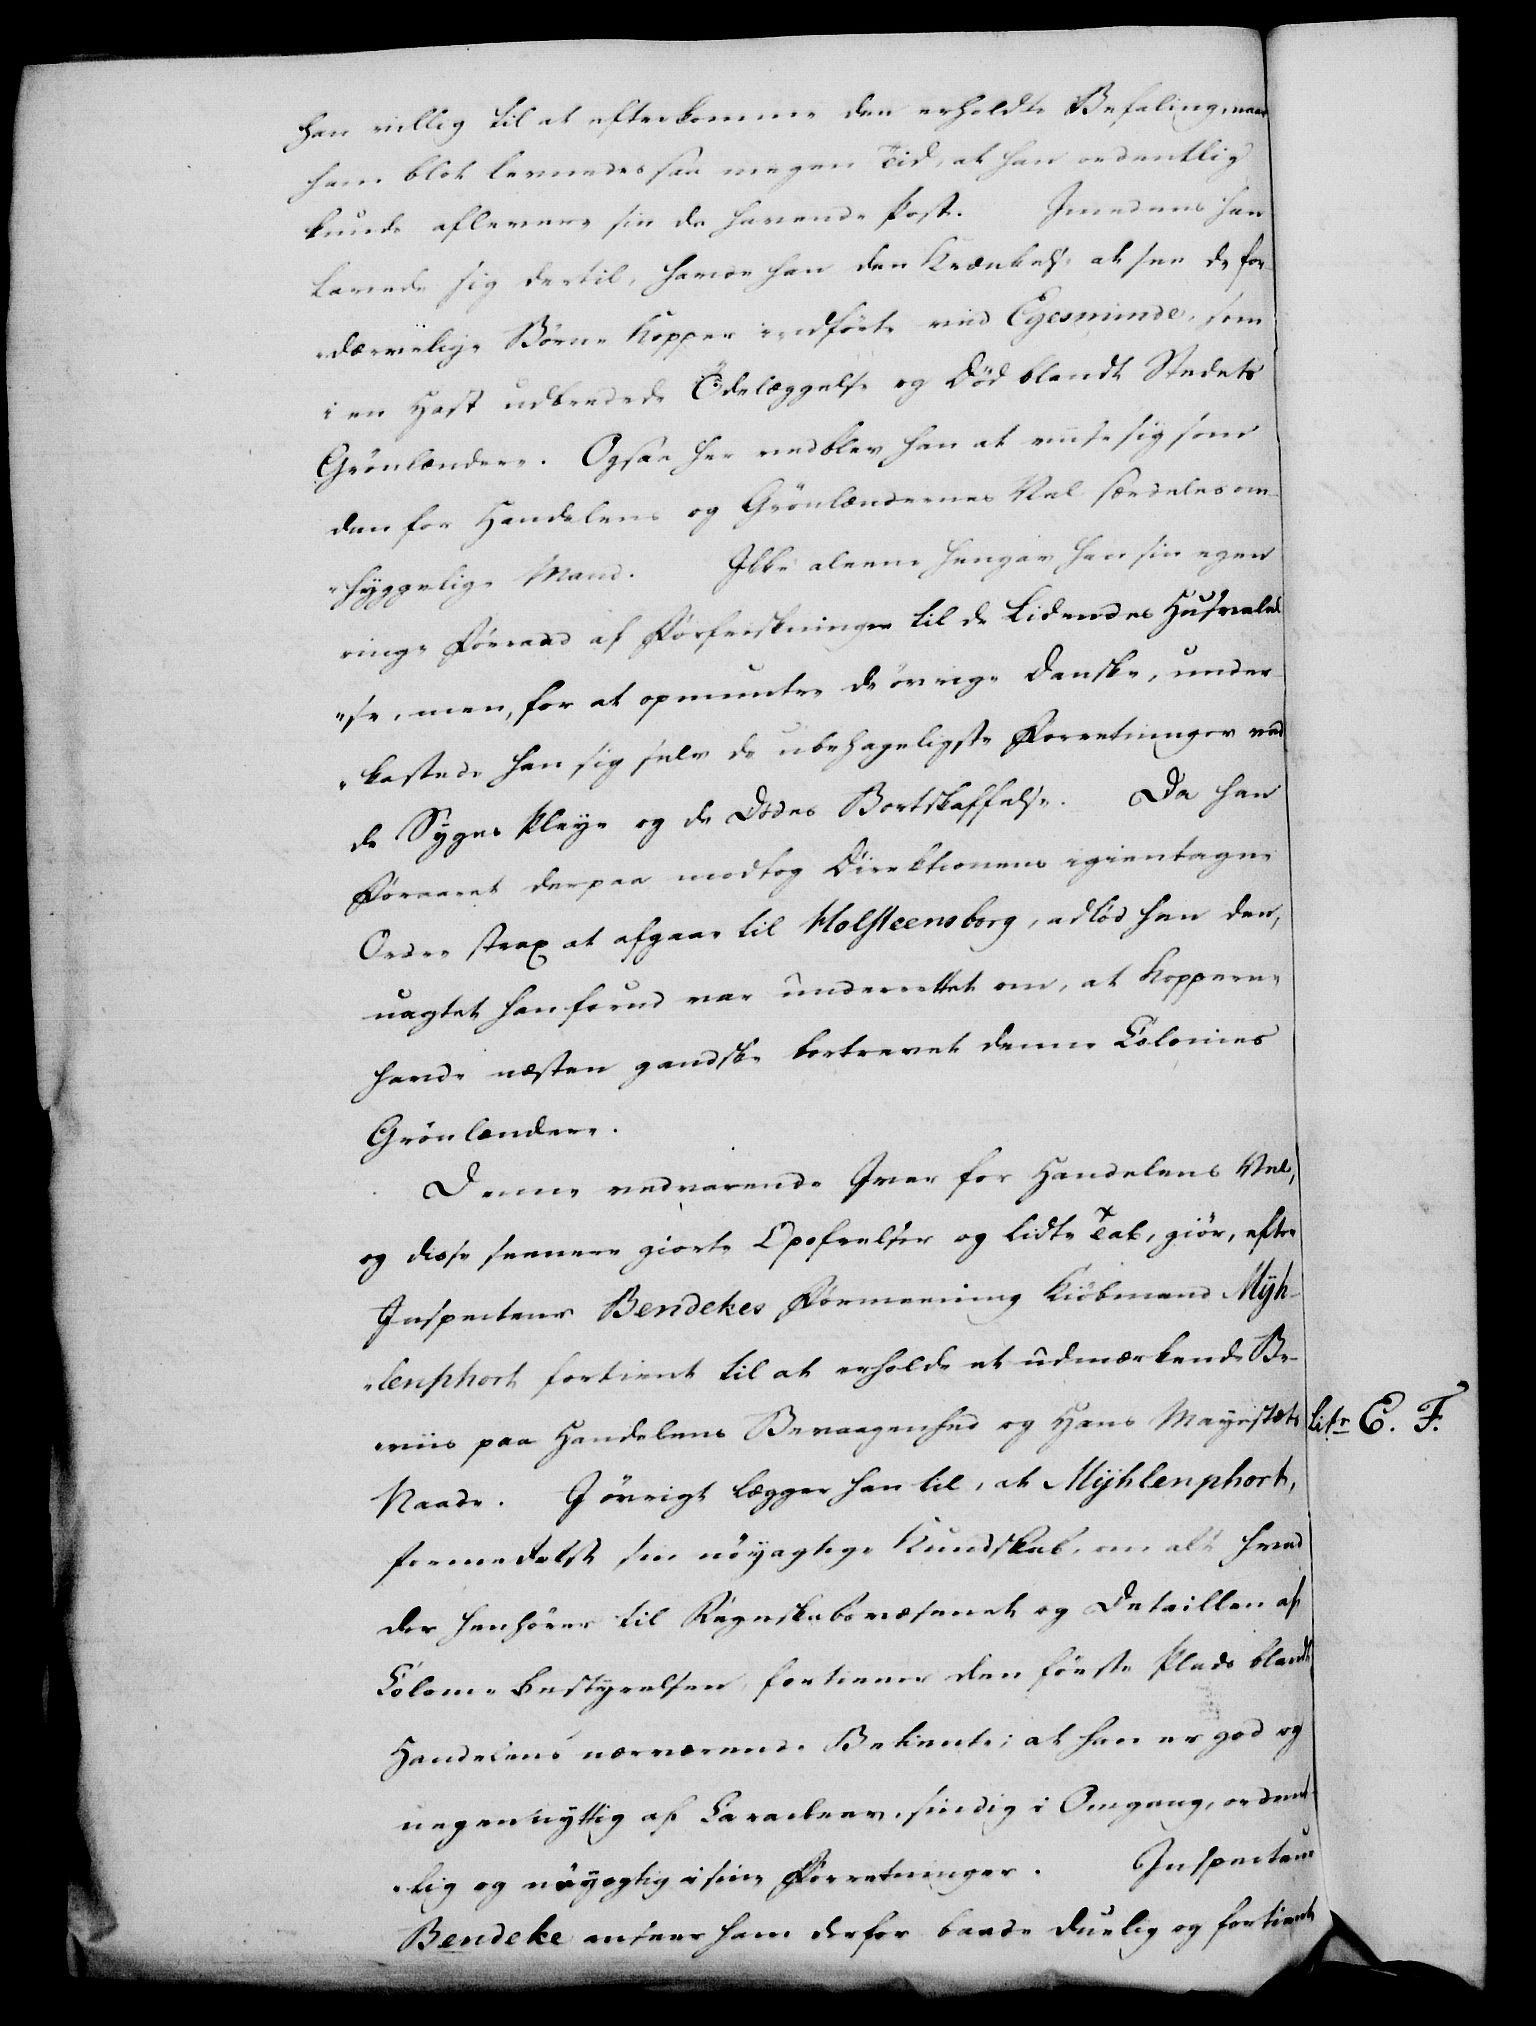 han villig til at efterkomme den erholdte Befaling, naar
ham blot levnedes saa megen Tid, at han ordentlig
kunde aflevere sin da havende Post. Imedens han
lavede sig dertil, havde han den Krænkelse at see de for¬
„dærvelige Børne Kopper indførte ved Egesminde, som
i en Hast udbredede Ödelæggelse og Død blandt Stedets
Grönlændere. Ogsaa her vedblev han at viise sig som
den for Handelens og Grönlændernes Vel særdeles om¬
„hyggelige Mand. Ikke alleene hengav han sin egen
ringe Forraad af Forfriskninger til de Lidendes Husvalel
„se, men, for at opmuntre de övrige Danske, under
„kastede han sig selv de ubehageligste Forretninger ved
de Syges Pleje og de Dødes Bortskaffelse. Da han
Foraaret derpaa modtog Direktionens igientagne
Ordre strax at afgaae til Holsteensborg, adlød han den,
uagtet han forud var underrettet om, at Kopperne
havde næsten gandske bortrevet denne Colonies
Grönlændere.
Denne vedvarende Iver for Handelens Vel,
og disse seenere giorte Opofrelser og lidte Tab, giör, efter
Inspecteur Bendekes Formeening Kiöbmand Mÿh¬
„lenphort fortient til at erholde et udmærkende Be¬
„viis paa Handelens Bevaagenhed og Hans Mayestæts
Litr E. F.
Naade. I övrigt lægger han til, at Mÿhlenphort,
formedelst sin nöyagtige Kundskab om alt hvad
der henhörer til Regnskabsvæsenet og Detaillen af
Colonie Bestyrelsen, fortiener den förste Plads blandt
Handelens nærværende Betiente; at han er god og
uegennyttig af Caracteer, sindig i Omgang, ordent¬
„lig og nöyagtig i sine Forretninger. Inspecteur
Bendeke ansaae ham derfor baade duelig og fortient